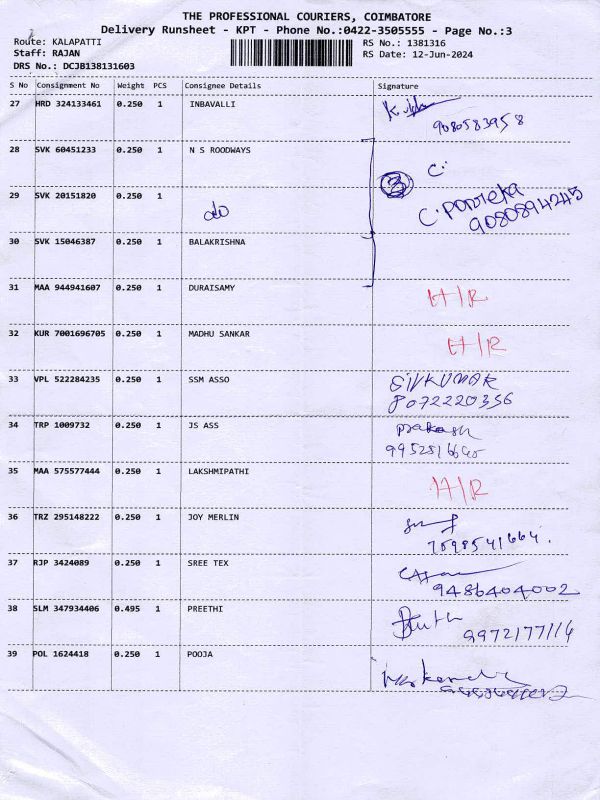 THE PROFESSIONAL COURIERS, COIMBATORE
Delivery Runsheet - KPT - Phone No.:0422-3505555 - Page No.:3
Route: KALAPATTI RS No.: 1381316
Staff: RAJAN RS Date: 12-Jun-2024
DRS No.: DCJB138131603
S No Consignment No Weight PCS Consignee Details Signature
27 HRD 324133461 0.250 1 INBAVALLI
9080583958
28 SVK 60451233 0.250 1 N S ROODWAYS
3 C:
29 SVK 20151820 0.250 1 do
C. Poovieka
9080894245
30 SVK 15046387 0.250 1 BALAKRISHNA
31 MAA 944941607 0.250 1 DURAISAMY H/R
32 KUR 7001696705 0.250 1 MADHU SANKAR H/R
33 VPL 522284235 0.250 1 SSM ASSO SIVKUMAR
8072220356
34 TRP 1009732 0.250 1 JS ASS Prakash
35 MAA 575577444 0.250 1 LAKSHMIPATHI H/R
36 TRZ 295148222 0.250 1 JOY MERLIN
7598541664.
37 RJP 3424089 0.250 1 SREE TEX
9486404002
38 SLM 347934406 0.495 1 PREETHI
9972177114
39 POL 1624418 0.250 1 POOJA